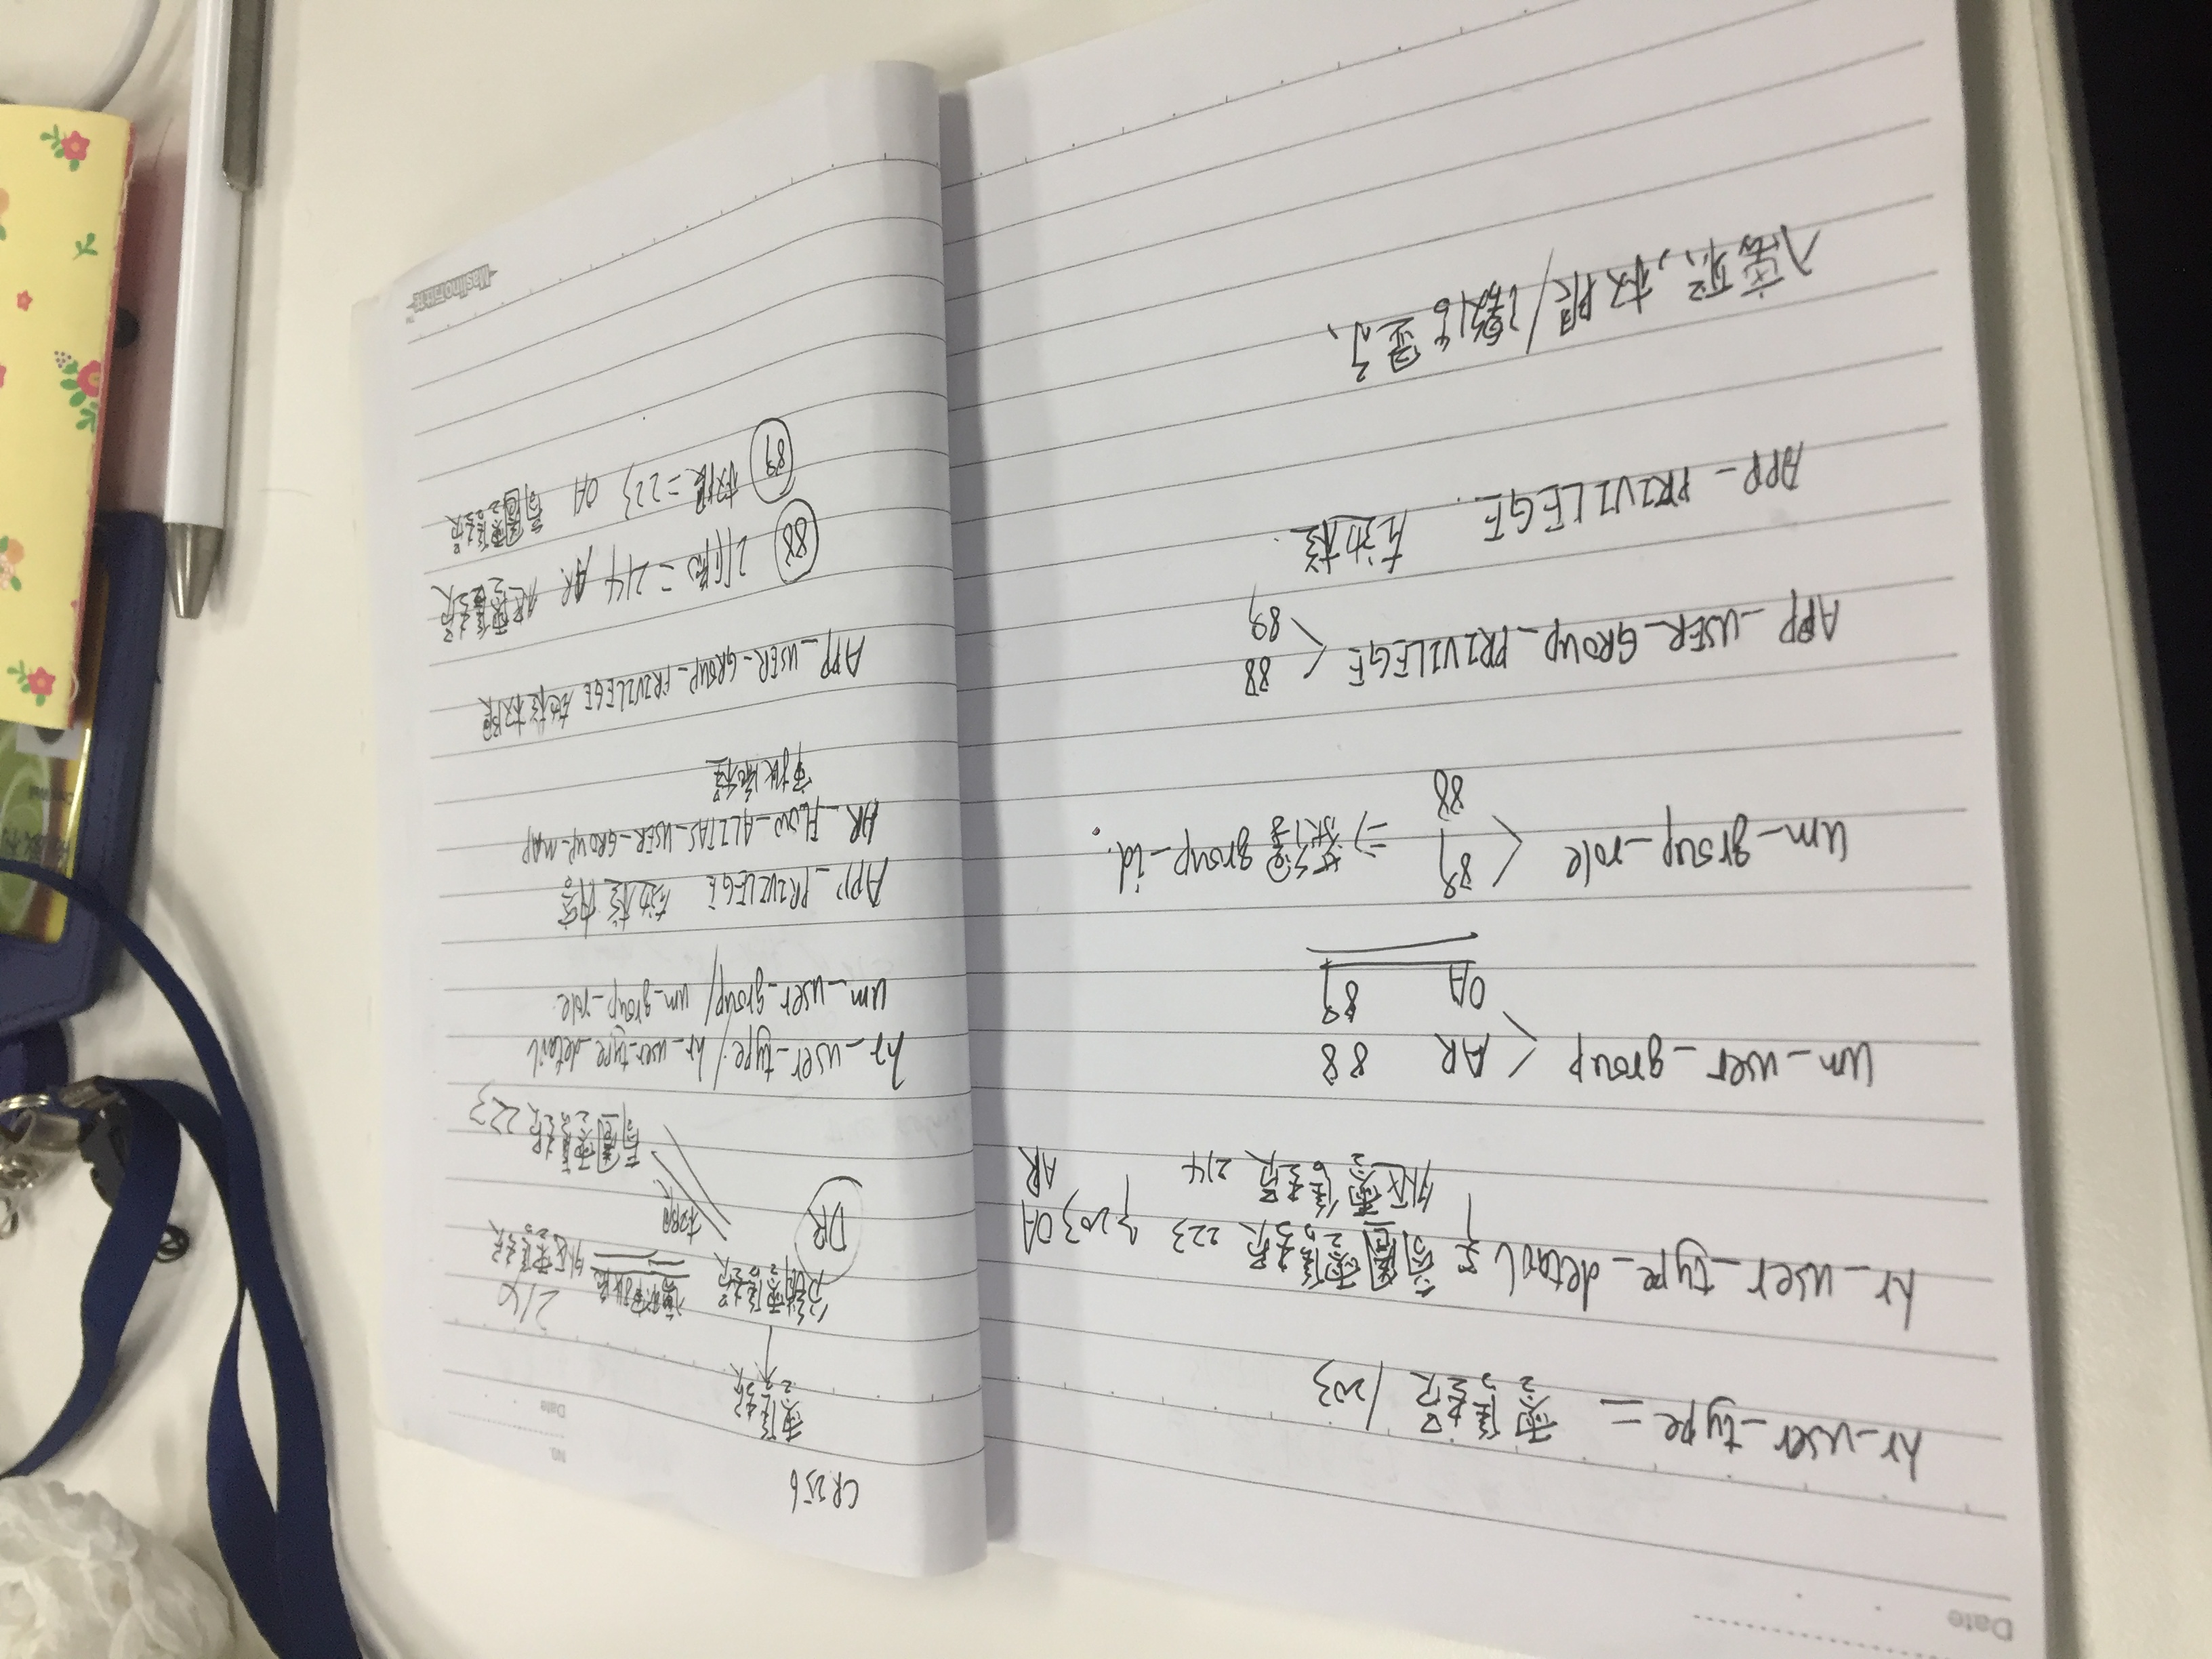 Date
hr_user_type = 零售员 / 203
hr_user_type_detail 商圈零售员 223 203 OA
外区零售员 214 AR
um_user_group < AR 88
OA 89
um_group_role < 89 ⇒ 获得 group_id.
88
APP_USER_GROUP_PRIVILEGE < 88
89
APP_PRIVILEGE 左边栏.
入离职、权限/激活显示、
No.
Date
CR256
零售员
214
外区零售员
DR
权限
商圈零售员 223
hr_user_type / hr_user_type_detail
um_user_group / um_group_role.
APP_PRIVILEGE 左边栏内容
HR_FLOW_ALIAS_USER_GROUP_MAP
审批流程
APP_USER_GROUP_PRIVILEGE 左边栏权限
88 = 214 AR 零售员
89 权限 = 223 OA 商圈零售员